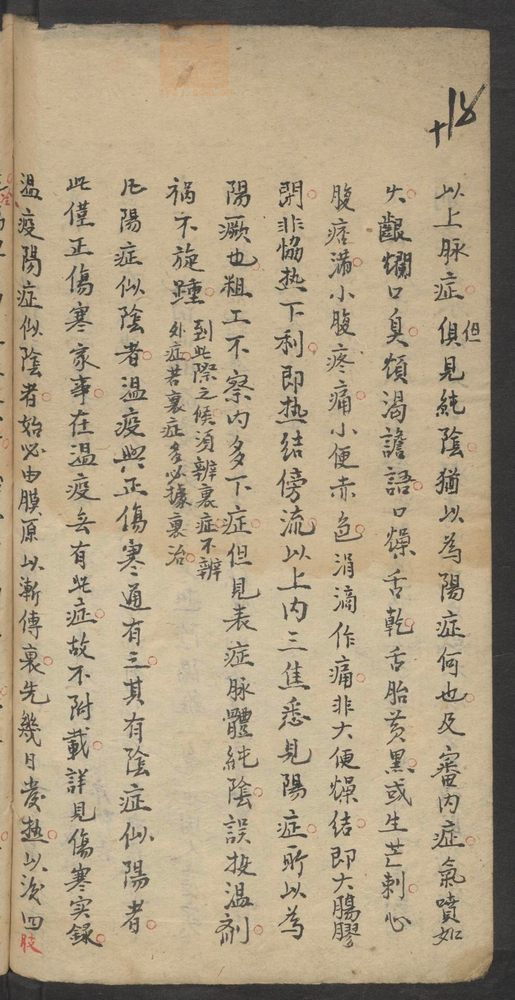 十18
以上脉症但俱見純陰猶以為陽症何也及審内症氣噴如
火齦爛口臭煩渴譫語口燥舌乾舌胎黄黒或生芒刺心
腹痞滿小腹疼痛小便赤色涓滴作痛非大便燥结即大腸膠
閉非恊热下利即热结傍流以上内三焦悉見陽症所以為
陽厥也粗工不察内多下症但見表症脉體純陰誤投温剤
祸不旋踵
到此際之候須辨裏症不辨
外症若裏症多必據裏治
凡陽症似陰者温疫與正傷寒通有之其有陰症似陽者
此僅正傷寒家事在温疫無有此症故不附載詳見傷寒实録
温疫陽症似陰者始必由膜原以漸傳裏先幾日發热以後四肢